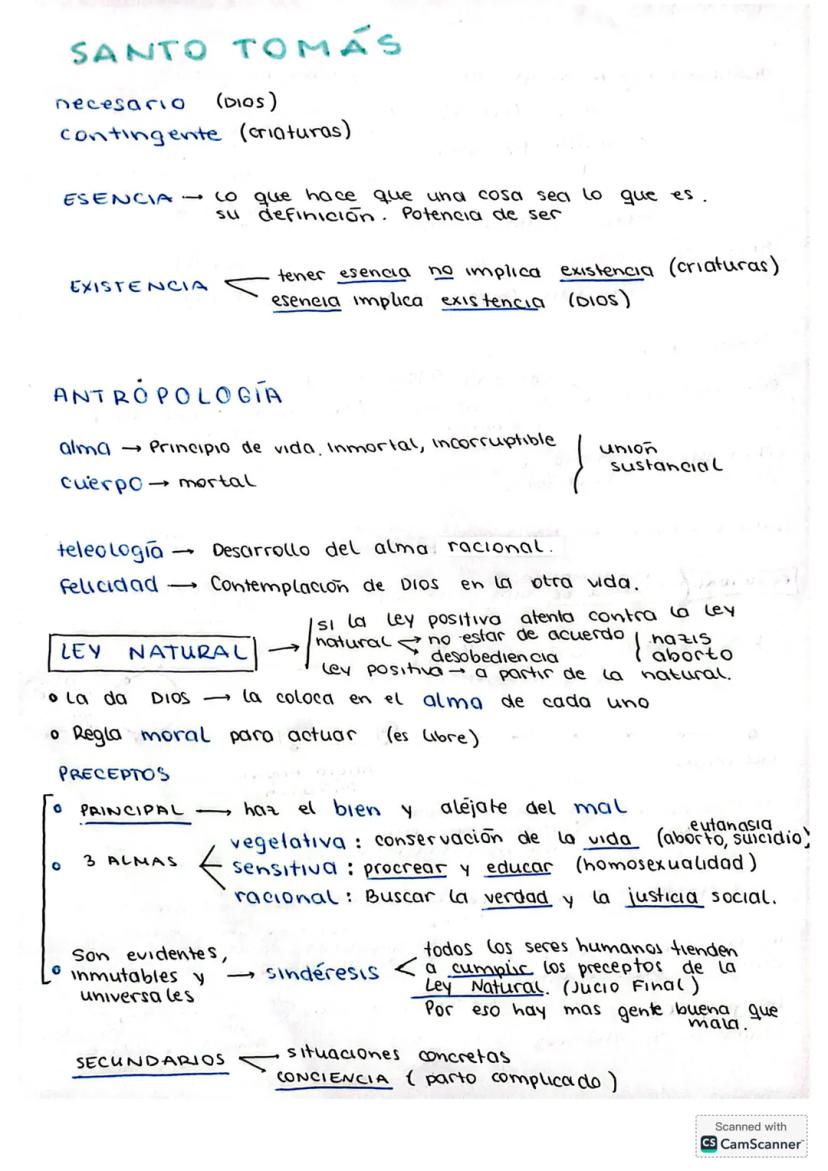 SANTO TOMÁS
necesario (DIOS)
contingente (criaturas)
ESENCIA → lo que hace que una cosa sea lo que es.
su definición. Potencia de ser
EXISTENCIA
tener esencia no implica existencia (criaturas)
esencia implica existencia (DIOS)
ANTRÓPOLOGÍA
alma → Principio de vida. Inmortal, incorruptible
cuerpo → mortal
unión
sustancial
teleología → Desarrollo del alma racional.
Felicidad → Contemplación de DIOS en la otra vida.
LEY NATURAL →
si la ley positiva atenta contra la ley
natural → no estar de acuerdo
desobediencia
nazis
aborto
Ley positiva → a partir de la natural.
• La da DIOS → la coloca en el alma de cada uno
• Regla moral para actuar (es libre)
PRECEPTOS
• PRINCIPAL → haz el bien y aléjate del mal
• 3 ALMAS
eutanasia
vegelativa: conservación de la vida (aborto, suicidio)
sensitiva: procrear y educar (homosexualidad)
racional: Buscar la verdad y la justicia social.
• Son evidentes,
inmutables y
universales
→ sindéresis
todos los seres humanos tienden
a cumplir los preceptos de la
Ley Natural. (Jucio Final)
Por eso hay mas gente buena que
mala.
SECUNDARIOS
situaciones concretas
CONCIENCIA (parto complicado)
Scanned with
CS CamScanner